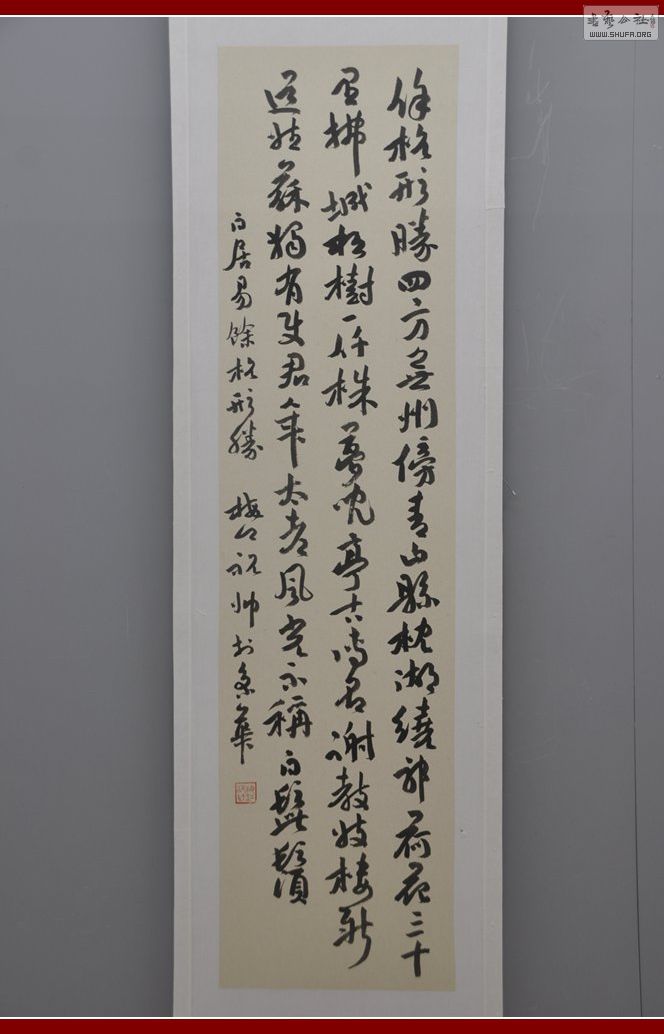 餘杭形勝四方無州傍青山縣枕湖繞郭荷花三十
里拂城松樹一仟株夢兒亭古傳名謝教妓樓新
道姓蘇獨有使君年太老風光不稱白髭鬚
白居易餘杭形勝 祝帅书京華
書藝公社
WWW.SHUFA.ORG